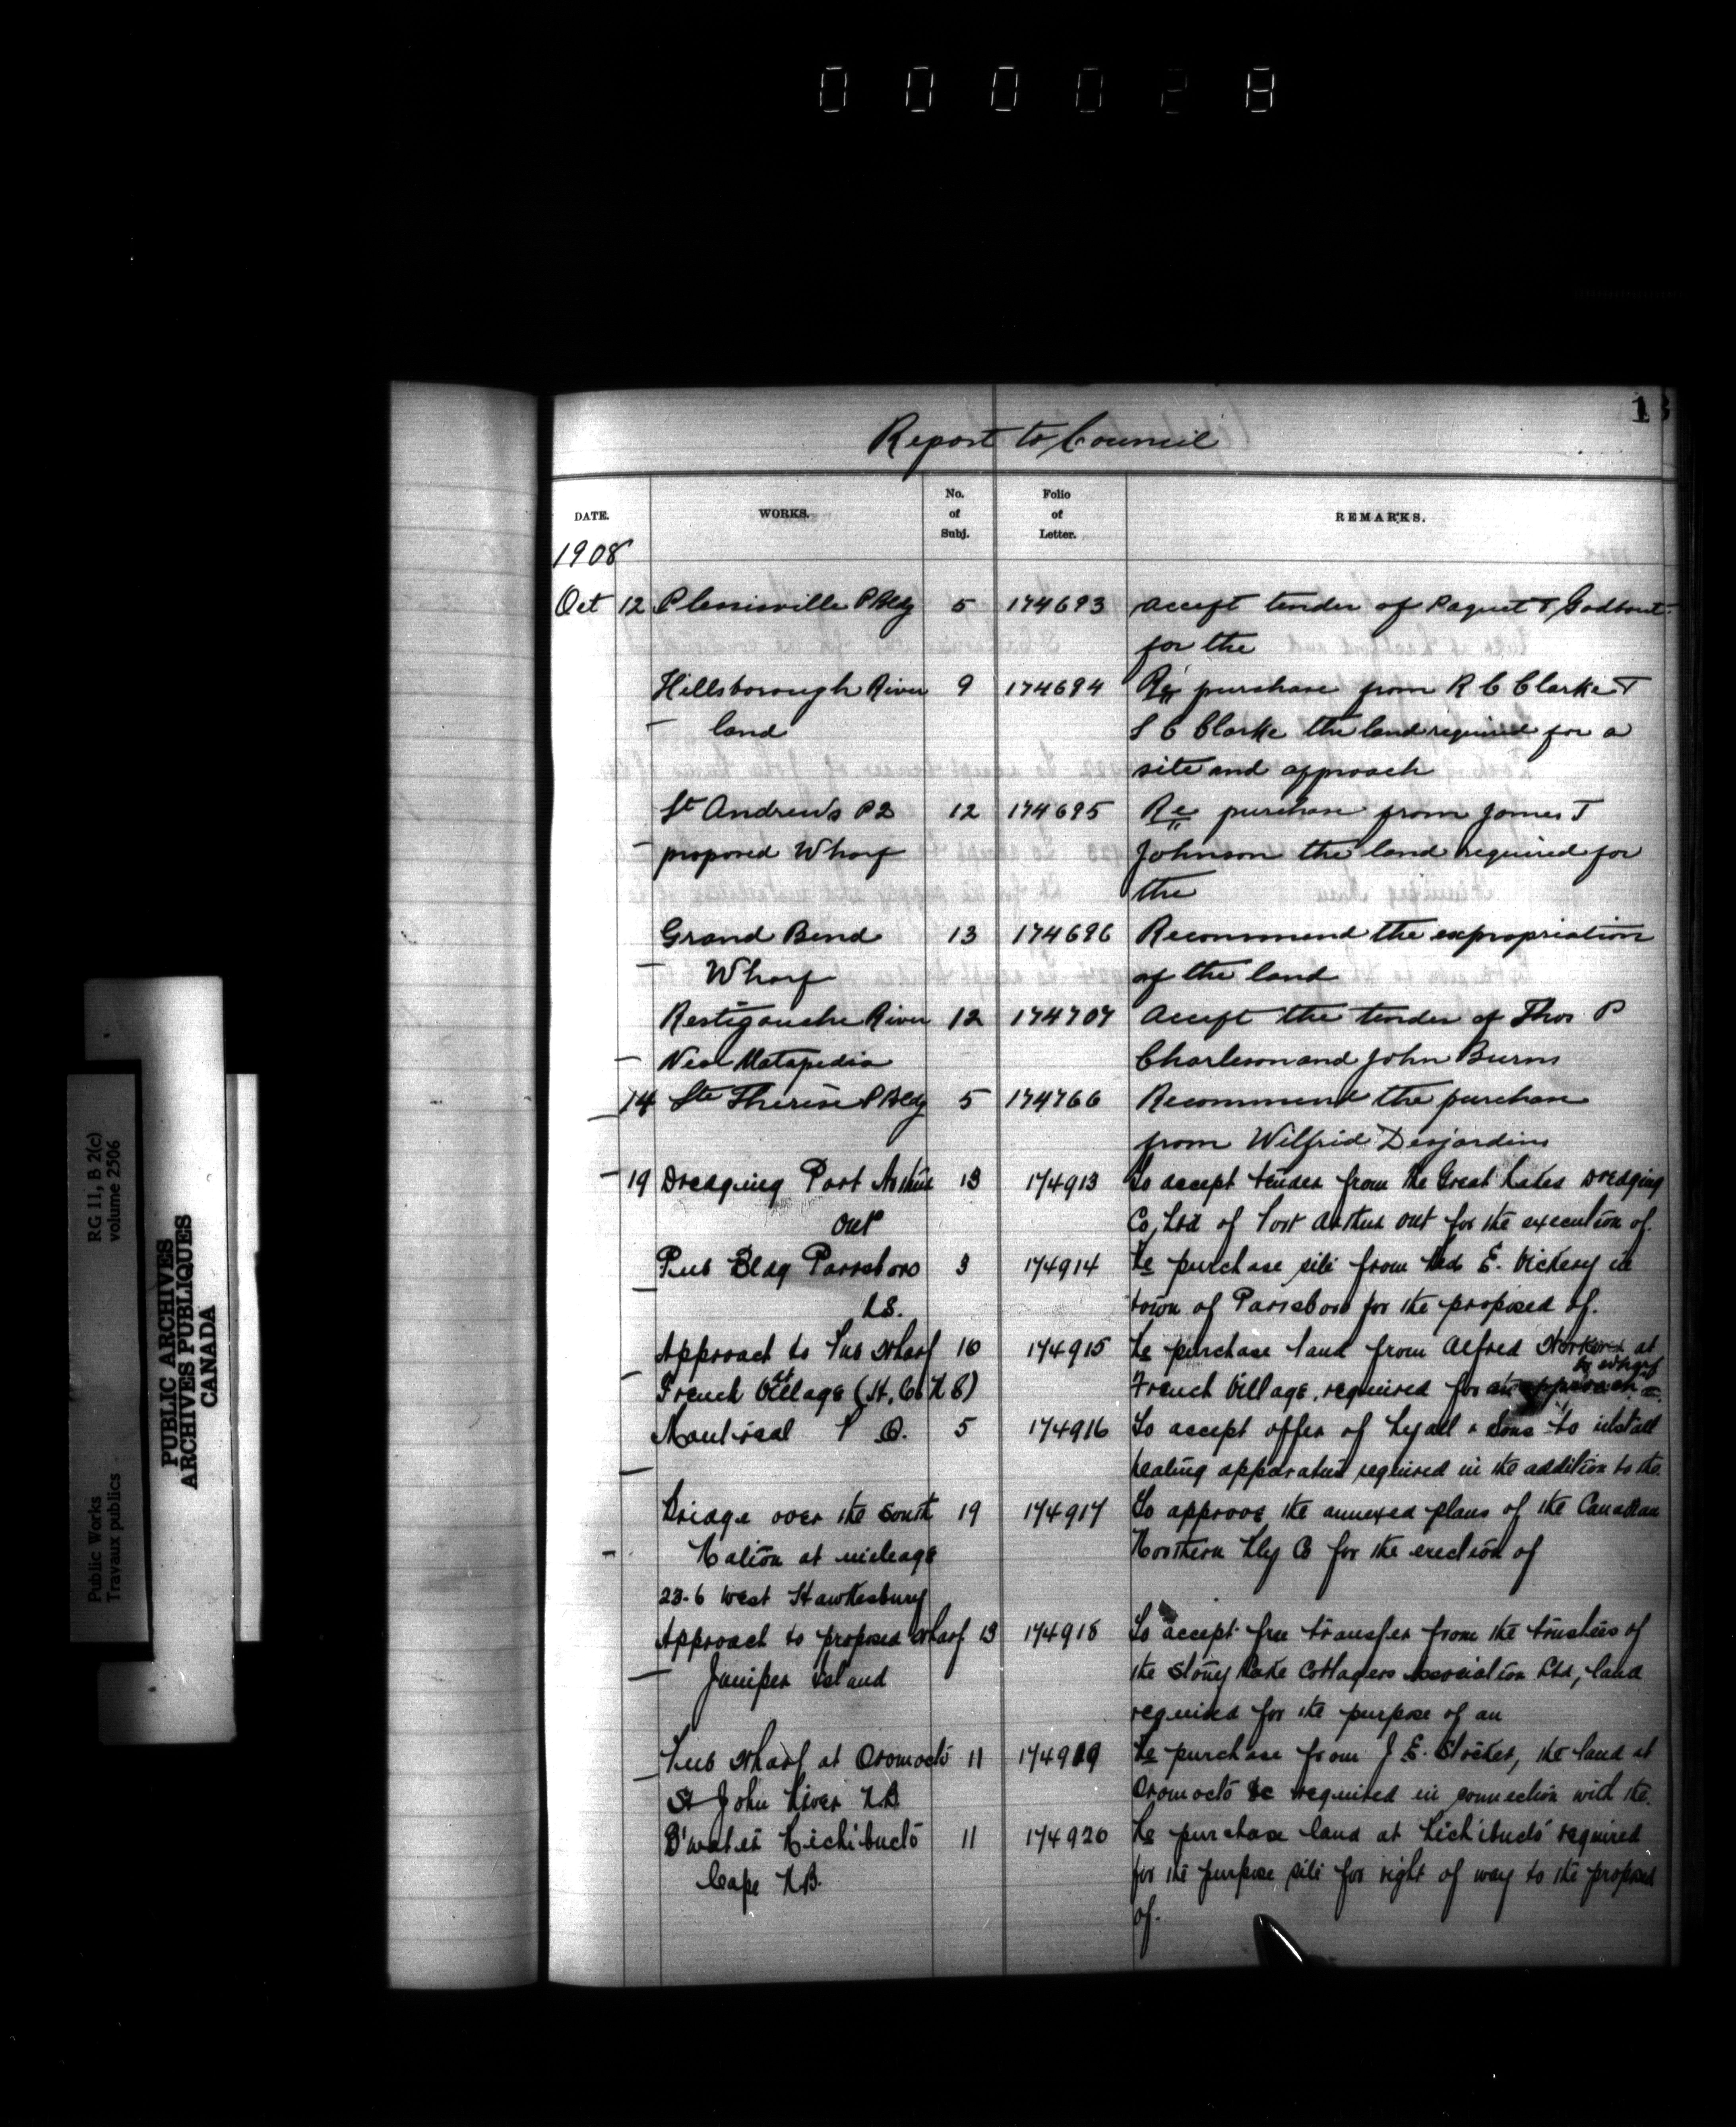 000028
13
Report to Council
DATE. WORKS. No. of Subj. Folio of Letter. REMARKS.
1908
Oct 12 Plessisville P Bldg 5 174693 Accept tender of Paquet & Godbout
for the
Hillsborough River 9 174694 Re purchase from R C Clarke &
land S C Clarke the land required for a
site and approach
St Andrews P 2 12 174695 Re purchase from James T
proposed Wharf Johnson the land required for
the
Grand Bend 13 174696 Recommend the expropriation
Wharf of the land
Restigouche River 12 174707 Accept the tender of Thos P
Near Matapedia Charleson and John Burns
14 Ste Therese P Bldg 5 174766 Recommend the purchase
from Wilfrid Desjardins
19 Dredging Port Arthur 13 174913 To accept tender from the Great Lakes Dredging
Ont Co Ltd of Port Arthur Ont for the execution of.
Pub Bldg Parrsboro 3 174914 Re purchase site from E. Vickery in
N.S. town of Parrsboro for the proposed of.
Approach to Pub Wharf 10 174915 Re purchase land from Alfred at
French Village (H. Co N S) French Village, required for
Montreal P O. 5 174916 To accept offer of Lyall & Sons to install
heating apparatus required in the addition to the.
Bridge over the South 19 174917 To approve the annexed plans of the Canadian
Nation at mileage Northern Rly Co for the erection of
23.6 West Hawkesbury
Approach to proposed wharf 13 174918 To accept free transfer from the trustees of
Juniper Island the Stoney Lake Cottagers Association Ltd, land
required for the purpose of an
Pub Wharf at Oromocto 11 174919 Re purchase from J E. Stocker, the land at
St John River N.B. Oromocto &c required in connection with the.
B'water Richibucto 11 174920 Re purchase land at Richibucto required
Cape N.B. for the purpose site for right of way to the proposed
of.
RG 11, B 2(c)
volume 2506
Public Works
Travaux publics
PUBLIC ARCHIVES
ARCHIVES PUBLIQUES
CANADA